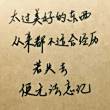 太过美好的东西
从来都不适合经历
若失去
便无法忘记